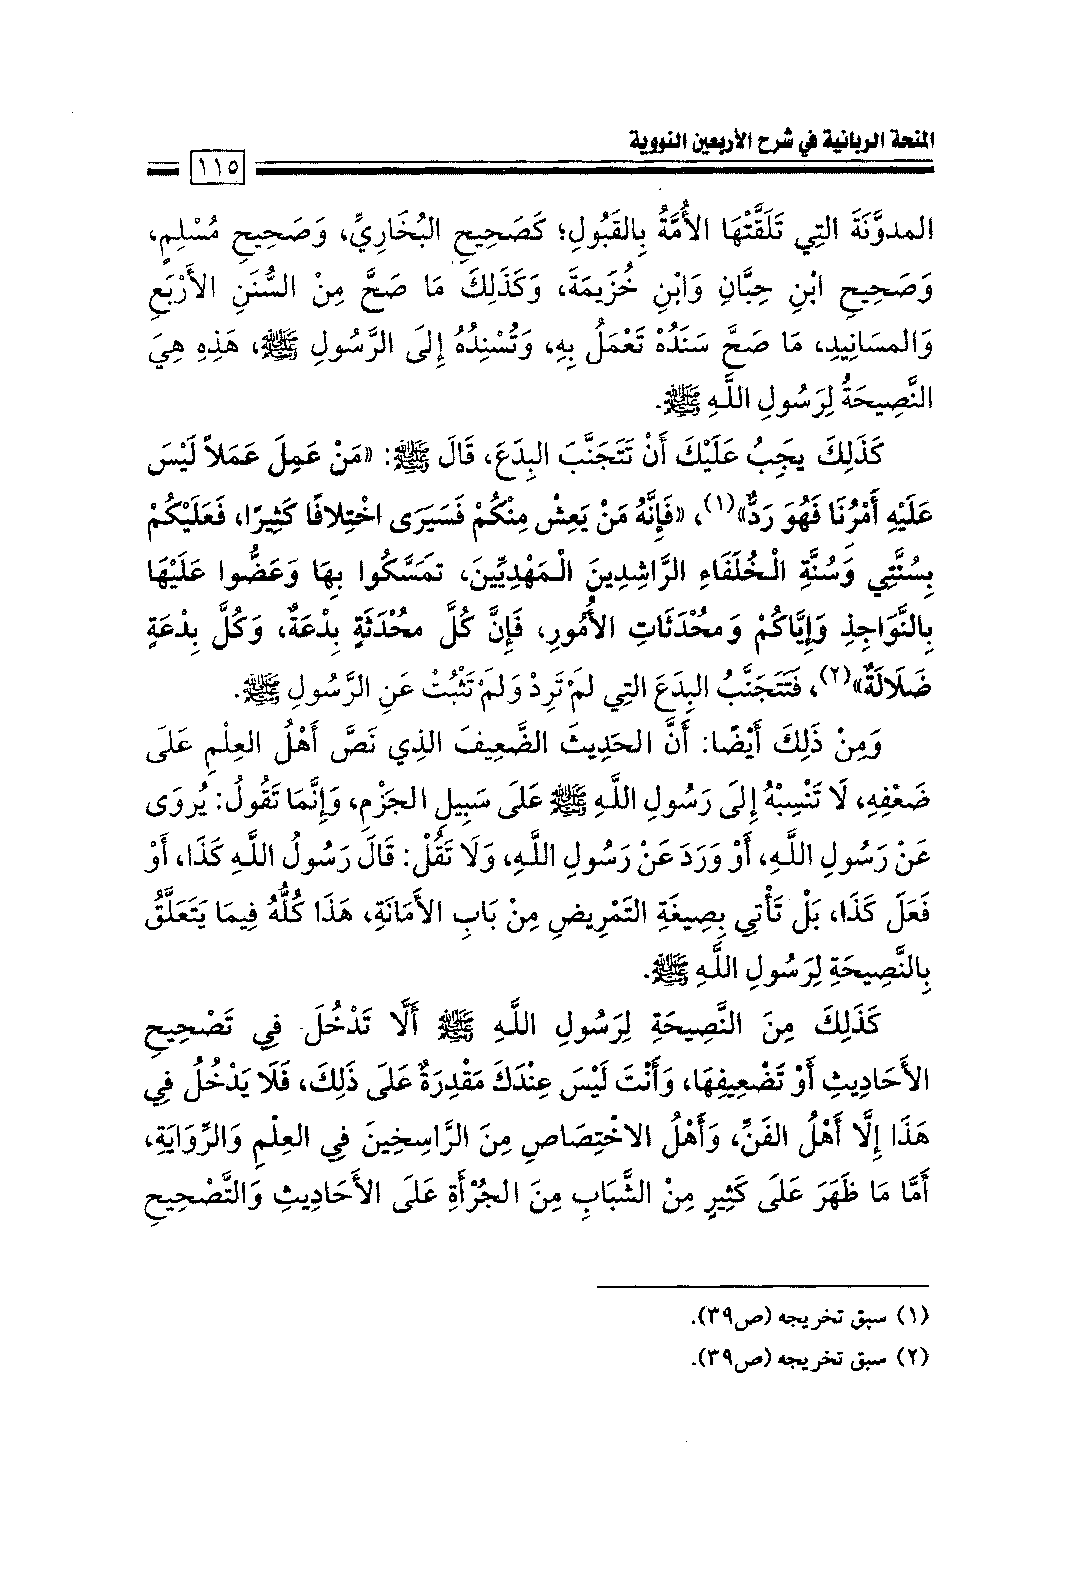 المنحة الربانية في شرح الأربعين النووية
١١٥
المدوَّنَةَ التِي تَلَقَّتْهَا الأُمَّةُ بِالقَبُولِ؛ كَصَحِيحِ البُخَارِيِّ، وَصَحِيحِ مُسْلِمٍ،
وَصَحِيحِ ابْنِ حِبَّانِ وَابْنِ خُزَيمَةَ، وَكَذَلِكَ مَا صَحَّ مِنْ السُّنَنِ الأَرْبَعِ
وَالمسَانِيدِ، مَا صَحَّ سَنَدُهُ تَعْمَلُ بِهِ، وَتُسْنِدُهُ إِلَى الرَّسُولِ ﷺ، هَذِهِ هِيَ
النَّصِيحَةُ لِرَسُولِ اللَّهِ ﷺ.
كَذَلِكَ يجَِبُ عَلَيْكَ أَنْ تَتَجَنَّبَ البِدَعَ، قَالَ ﷺ: «مَنْ عَمِلَ عَمَلاً لَيْسَ
عَلَيْهِ أَمْرُنَا فَهُوَ رَدٌّ»(١)، «فَإِنَّهُ مَنْ يَعِشْ مِنْكُمْ فَسَيَرَى اخْتِلافًا كَثِيرًا، فَعَلَيْكُمْ
بِسُنَّتِي وَسُنَّةِ الْخُلَفَاءِ الرَّاشِدِينَ الْمَهْدِيِّينَ، تمَسَّكُوا بِهَا وَعَضُّوا عَلَيْهَا
بِالنَّوَاجِذِ وَإِيَّاكُمْ وَمحُْدَثَاتِ الأُمُورِ، فَإِنَّ كُلَّ محُْدَثَةٍ بِدْعَةٌ، وَكُلَّ بِدْعَةٍ
ضَلَالَةٌ»(٢)، فَتَتَجَنَّبُ البِدَعَ التِي لَمْ تَرِدْ وَلَمْ تَثْبُتْ عَنِ الرَّسُولِ ﷺ.
وَمِنْ ذَلِكَ أَيْضًا: أَنَّ الحَدِيثَ الضَّعِيفَ الذِي نَصَّ أَهْلُ العِلْمِ عَلَى
ضَعْفِهِ، لَا تَنْسِبْهُ إِلَى رَسُولِ اللَّهِ ﷺ عَلَى سَبِيلِ الجَزْمِ، وَإِنَّمَا تَقُولُ: يُرْوَى
عَنْ رَسُولِ اللَّهِ، أَوْ وَرَدَ عَنْ رَسُولِ اللَّهِ، وَلَا تَقُلْ: قَالَ رَسُولُ اللَّهِ كَذَا، أَوْ
فَعَلَ كَذَا، بَلْ تَأْتِي بِصِيغَةِ التَّمْرِيضِ مِنْ بَابِ الأَمَانَةِ، هَذَا كُلُّهُ فِيمَا يَتَعَلَّقُ
بِالنَّصِيحَةِ لِرَسُولِ اللَّهِ ﷺ.
كَذَلِكَ مِنَ النَّصِيحَةِ لِرَسُولِ اللَّهِ ﷺ أَلَّا تَدْخُلَ فِي تَصْحِيحِ
الأَحَادِيثِ أَوْ تَضْعِيفِهَا، وَأَنْتَ لَيْسَ عِنْدَكَ مَقْدِرَةٌ عَلَى ذَلِكَ، فَلَا يَدْخُلُ فِي
هَذَا إِلَّا أَهْلُ الفَنِّ، وَأَهْلُ الاخْتِصَاصِ مِنَ الرَّاسِخِينَ فِي العِلْمِ وَالرِّوَايَةِ،
أَمَّا مَا ظَهَرَ عَلَى كَثِيرٍ مِنْ الشَّبَابِ مِنَ الجُرْأَةِ عَلَى الأَحَادِيثِ وَالتَّصْحِيحِ
(١) سبق تخريجه (ص٣٩).
(٢) سبق تخريجه (ص٣٩).